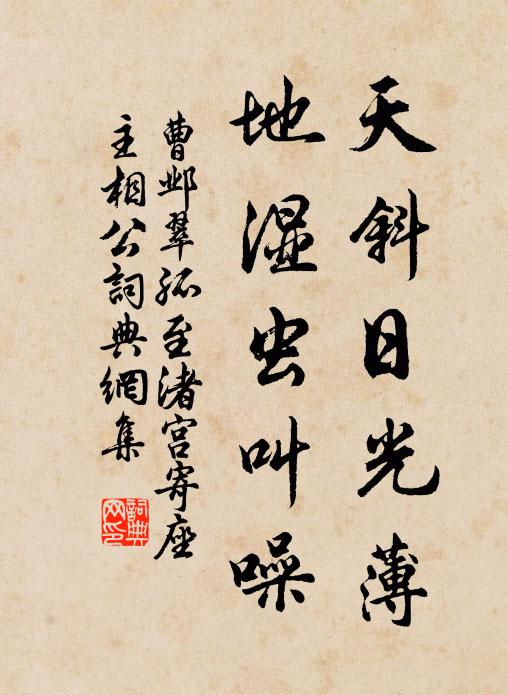 天斜日光薄
地湿虫叫噪
曹邺翠孤至渚宫寄座
主相公詞典網集
詞典
网印